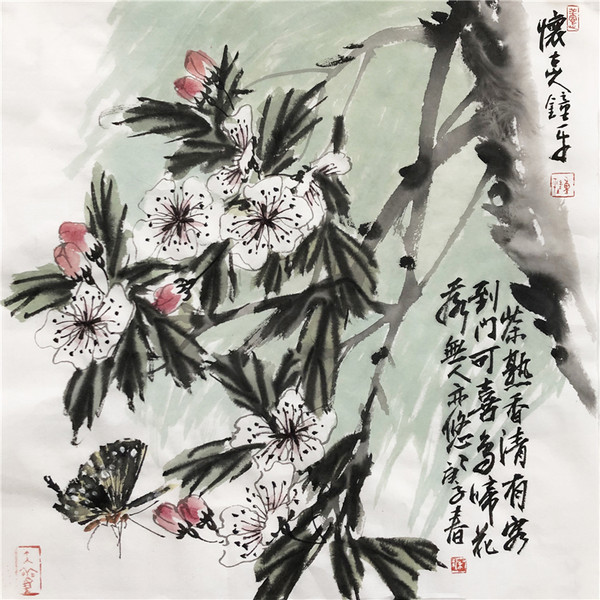 懷人鐘
茶熟香清有客
到門可喜鳥啼花
落無人亦悠〻庚子春